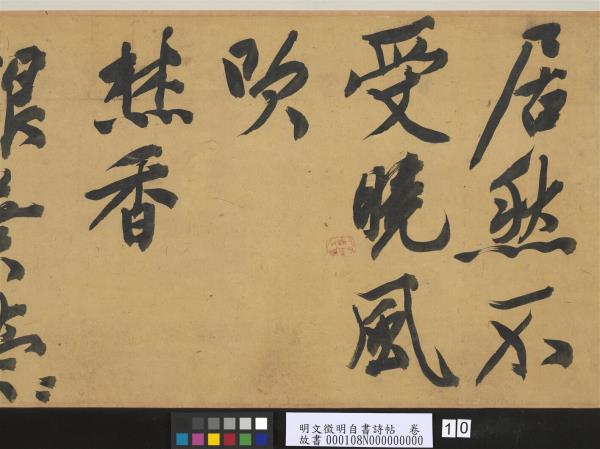 居然不
受曉風
吹
焚香
明文徵明自書詩帖　卷
故書 000108N000000000
10